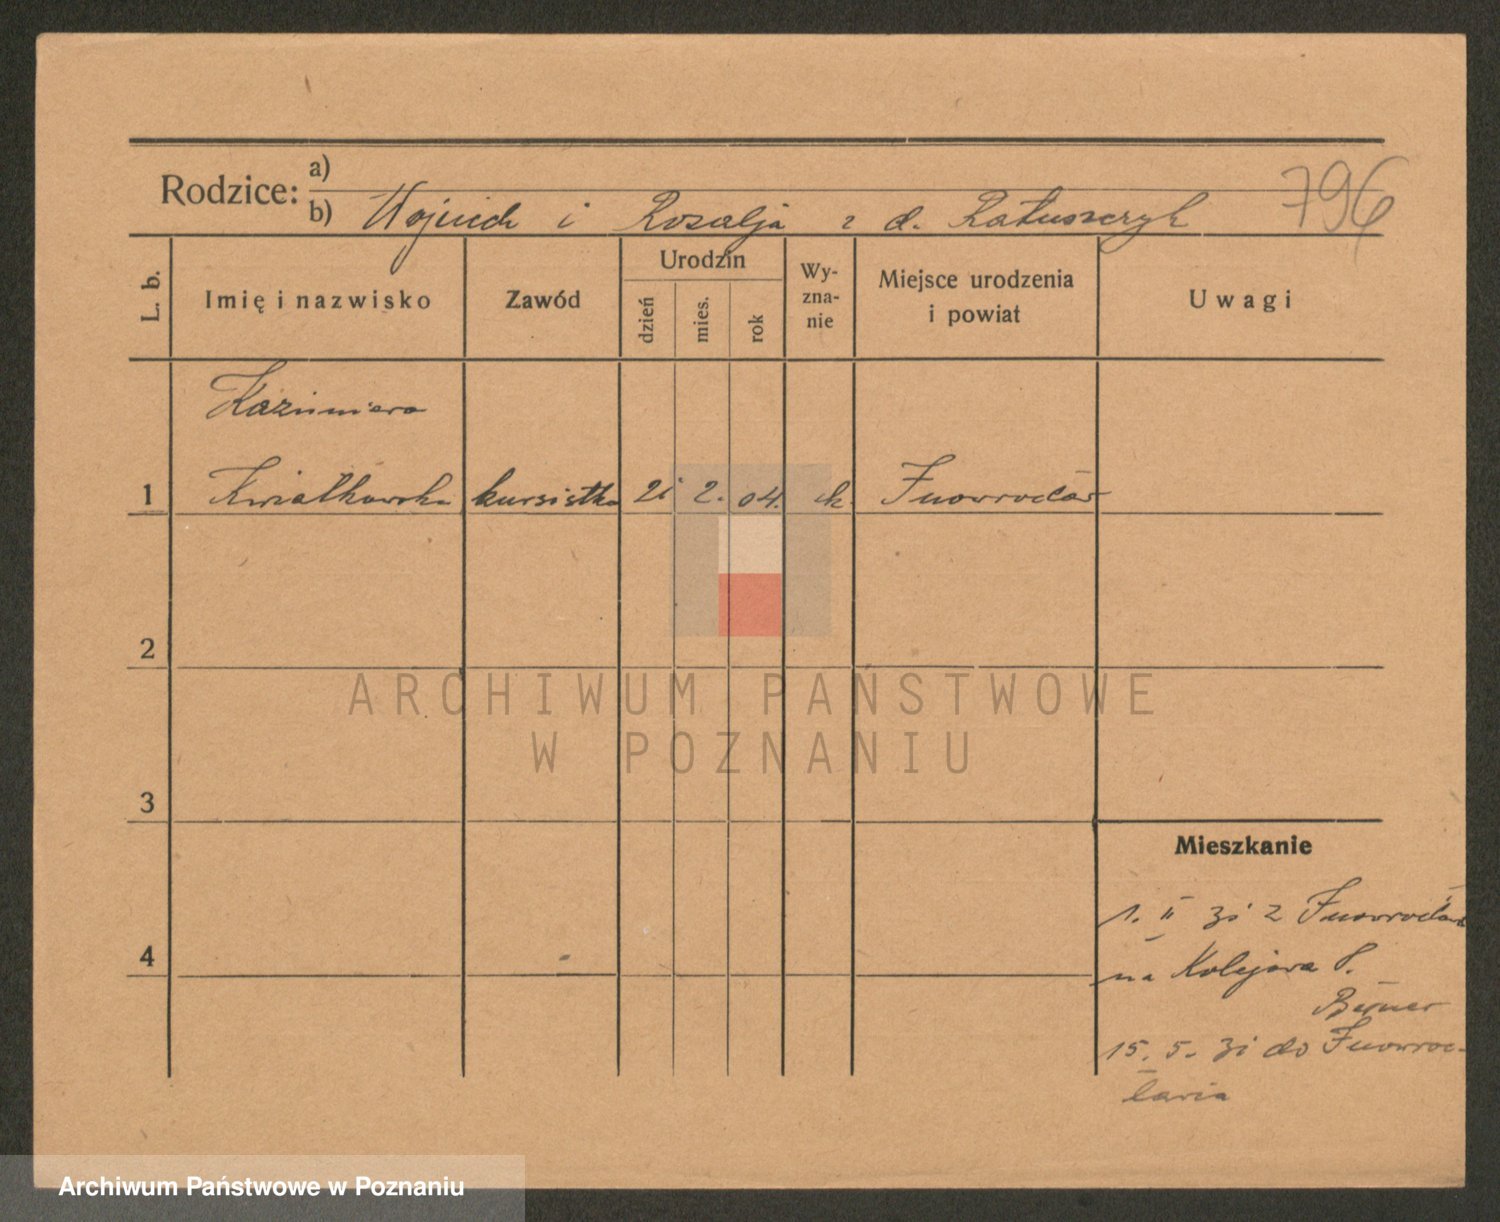 796
Rodzice: a)
b) Wojciech i Rozalja z d. Ratuszczyk
L. b.
Imię i nazwisko
Zawód
Urodzin
dzień
mies.
rok
Wy-
zna-
nie
Miejsce urodzenia
i powiat
Uwagi
Kazimiera
1 Kwiatkowska kursistka 21 2. 04. k. Inowrocław
2
3
4
Mieszkanie
1. II 31 z Inowrocławia
na Kolejowa 8.
15. 5. 31 do Inowroc-
ławia
ARCHIWUM PAŃSTWOWE
W POZNANIU
Archiwum Państwowe w Poznaniu